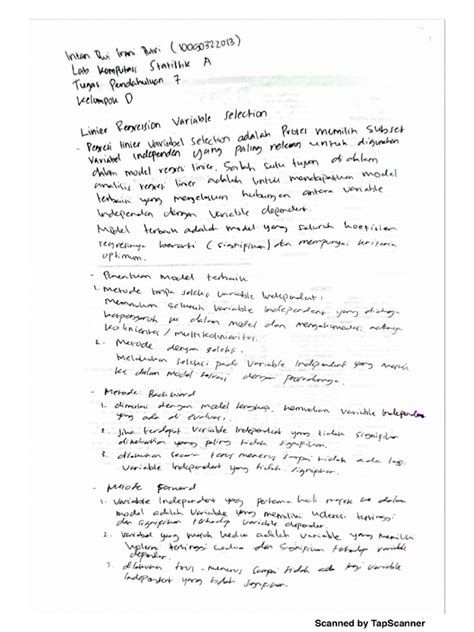 Intan Dwi Irani Putri (10060322013)
Lab Komputasi Statistik A
Tugas Pendahuluan 7
Kelompok D
Linier Regression Variable Selection
- Regresi linier Variabel Selection adalah Proses memilih subset
variabel independen yang paling relevan untuk digunakan
dalam model regresi linier. Salah satu tujuan di dalam
analisis regresi linier adalah untuk mendapatkan model
terbaik yang menjelaskan hubungan antara variable
Independen dengan variable dependent.
Model terbaik adalah model yang seluruh koefisien
regresinya berarti (signifikan) dan mempunyai kriteria
optimum.
- Penentuan Model terbaik
1. Metode tanpa seleksi variable Independent :
Memasukan seluruh variable Independent yang
berpengaruh ke dalam model dan adanya
kolinieritas / multikolinieritas.
2. Metode dengan seleksi.
Melakukan seleksi pada variable Independent yang masuk
ke dalam model dengan prosedurnya.
- Metode Backward
1. dimulai dengan model lengkap, kemudian variable Independen
yang ada di evaluasi.
2. Jika terdapat variable Independent yang tidak signifikan
dikeluarkan yang paling tidak signifikan.
3. dilakukan secara terus menerus sampai tidak ada lagi
variable Independent yang tidak signifikan.
- Metode Forward
1. Variable Independent yang pertama kali masuk ke dalam
model adalah variable yang memiliki korelasi tertinggi
dan signifikan terhadap variable dependen.
2. Variabel yang masuk kedua adalah variable yang memiliki
korelasi tertinggi kedua dan Signifikan terhadap variable
dependen.
3. dilakukan terus-menerus sampai tidak ada lagi variable
Independent yang tidak signifikan.
Scanned by TapScanner